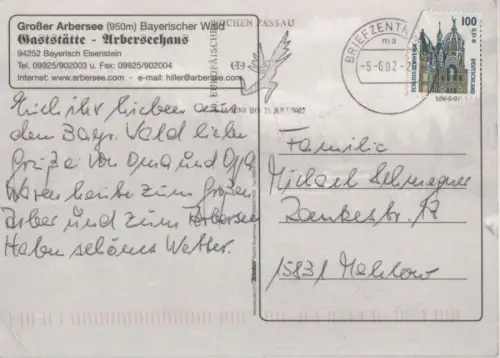 Großer Arbersee (950m) Bayerischer Wald
Gaststätte - Arberseehaus
94252 Bayerisch Eisenstein
Tel. 09925/902003 u. Fax: 09925/902004
Internet: www.arbersee.com - e-mail: hiller@arbersee.com
EUROPÄISCHE WOCHEN PASSAU
BIS 28. JULI 2002
BRIEFZENTRUM
ma
-5-6.02-
100
0,51 €
DEUTSCHLAND
SCHLOSS SCHWERIN
Euch ihr Lieben aus
dem Bayr. Wald liebe
Grüße von Oma und Opa
Waren heute zum großen
Arber und zum Arbersee
Haben schönes Wetter.
Familie
Michael
Zankestr. 12
15831 Mahlow